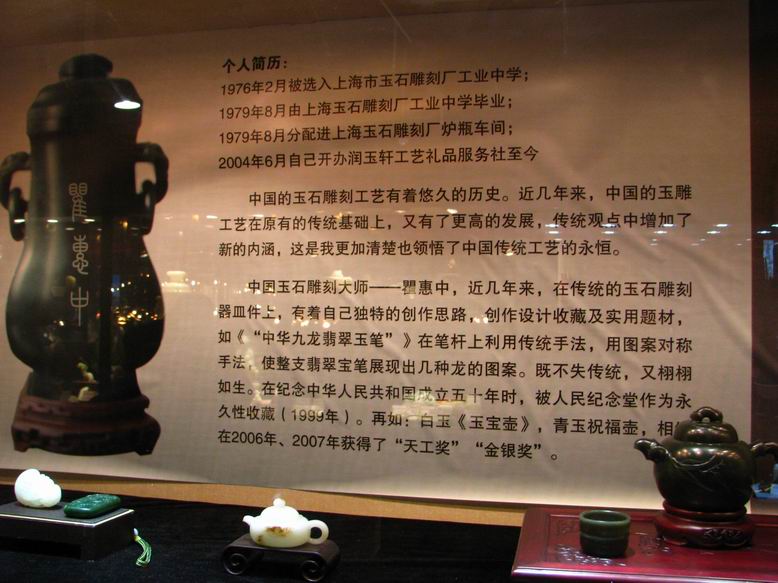 个人简历：
1976年2月被选入上海市玉石雕刻厂工业中学；
1979年8月由上海玉石雕刻厂工业中学毕业；
1979年8月分配进上海玉石雕刻厂炉瓶车间；
2004年6月自己开办润玉轩工艺礼品服务社至今
中国的玉石雕刻工艺有着悠久的历史。近几年来，中国的玉雕
工艺在原有的传统基础上，又有了更高的发展，传统观点中增加了
新的内涵，这是我更加清楚也领悟了中国传统工艺的永恒。
中国玉石雕刻大师——瞿惠中，近几年来，在传统的玉石雕刻
器皿件上，有着自己独特的创作思路，创作设计收藏及实用题材，
如《“中华九龙翡翠玉笔”》在笔杆上利用传统手法，用图案对称
手法，使整支翡翠宝笔展现出几种龙的图案。既不失传统，又栩栩
如生。在纪念中华人民共和国成立五十年时，被人民纪念堂作为永
久性收藏（1999年）。再如：白玉《玉宝壶》，青玉祝福壶，相
在2006年、2007年获得了“天工奖”“金银奖”。
瞿惠中